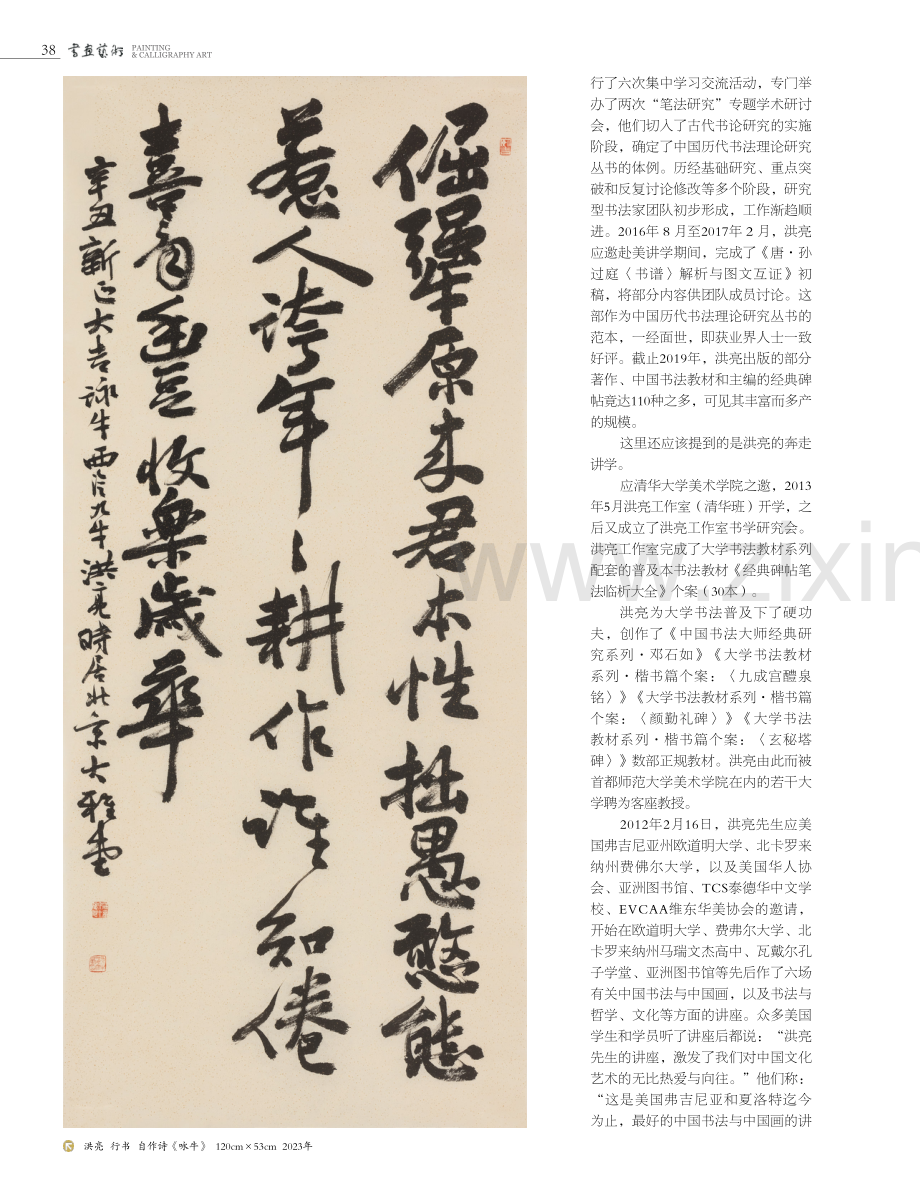 38 書畫藝術 PAINTING
& CALLIGRAPHY ART
倔强犟原来君本性拙愚憨態
惹人誇年〻耕作誰知倦
喜看金豆收樂歲華
辛丑新正大吉詠牛西泠九牛洪亮時居北京大雅堂
洪亮 行书 自作诗《咏牛》 120cm×53cm 2023年
行了六次集中学习交流活动，专门举
办了两次“笔法研究”专题学术研讨
会，他们切入了古代书论研究的实施
阶段，确定了中国历代书法理论研究
丛书的体例。历经基础研究、重点突
破和反复讨论修改等多个阶段，研究
型书法家团队初步形成，工作渐趋顺
进。2016年 8 月至2017年 2 月，洪亮
应邀赴美讲学期间，完成了《唐·孙
过庭〈书谱〉解析与图文互证》初
稿，将部分内容供团队成员讨论。这
部作为中国历代书法理论研究丛书的
范本，一经面世，即获业界人士一致
好评。截止2019年，洪亮出版的部分
著作、中国书法教材和主编的经典碑
帖竟达110种之多，可见其丰富而多产
的规模。
这里还应该提到的是洪亮的奔走
讲学。
应清华大学美术学院之邀，2013
年5月洪亮工作室（清华班）开学，之
后又成立了洪亮工作室书学研究会。
洪亮工作室完成了大学书法教材系列
配套的普及本书法教材《经典碑帖笔
法临析大全》个案（30本）。
洪亮为大学书法普及下了硬功
夫，创作了《中国书法大师经典研
究系列·邓石如》《大学书法教材
系列·楷书篇个案：〈九成宫醴泉
铭〉》《大学书法教材系列·楷书篇
个案：〈颜勤礼碑〉》《大学书法
教材系列·楷书篇个案：〈玄秘塔
碑〉》数部正规教材。洪亮由此而被
首都师范大学美术学院在内的若干大
学聘为客座教授。
2012年2月16日，洪亮先生应美
国弗吉尼亚州欧道明大学、北卡罗来
纳州费佛尔大学，以及美国华人协
会、亚洲图书馆、TCS泰德华中文学
校、EVCAA维东华美协会的邀请，
开始在欧道明大学、费弗尔大学、北
卡罗来纳州马瑞文杰高中、瓦戴尔孔
子学堂、亚洲图书馆等先后作了六场
有关中国书法与中国画，以及书法与
哲学、文化等方面的讲座。众多美国
学生和学员听了讲座后都说：“洪亮
先生的讲座，激发了我们对中国文化
艺术的无比热爱与向往。”他们称：
“这是美国弗吉尼亚和夏洛特迄今
为止，最好的中国书法与中国画的讲
www.zixin